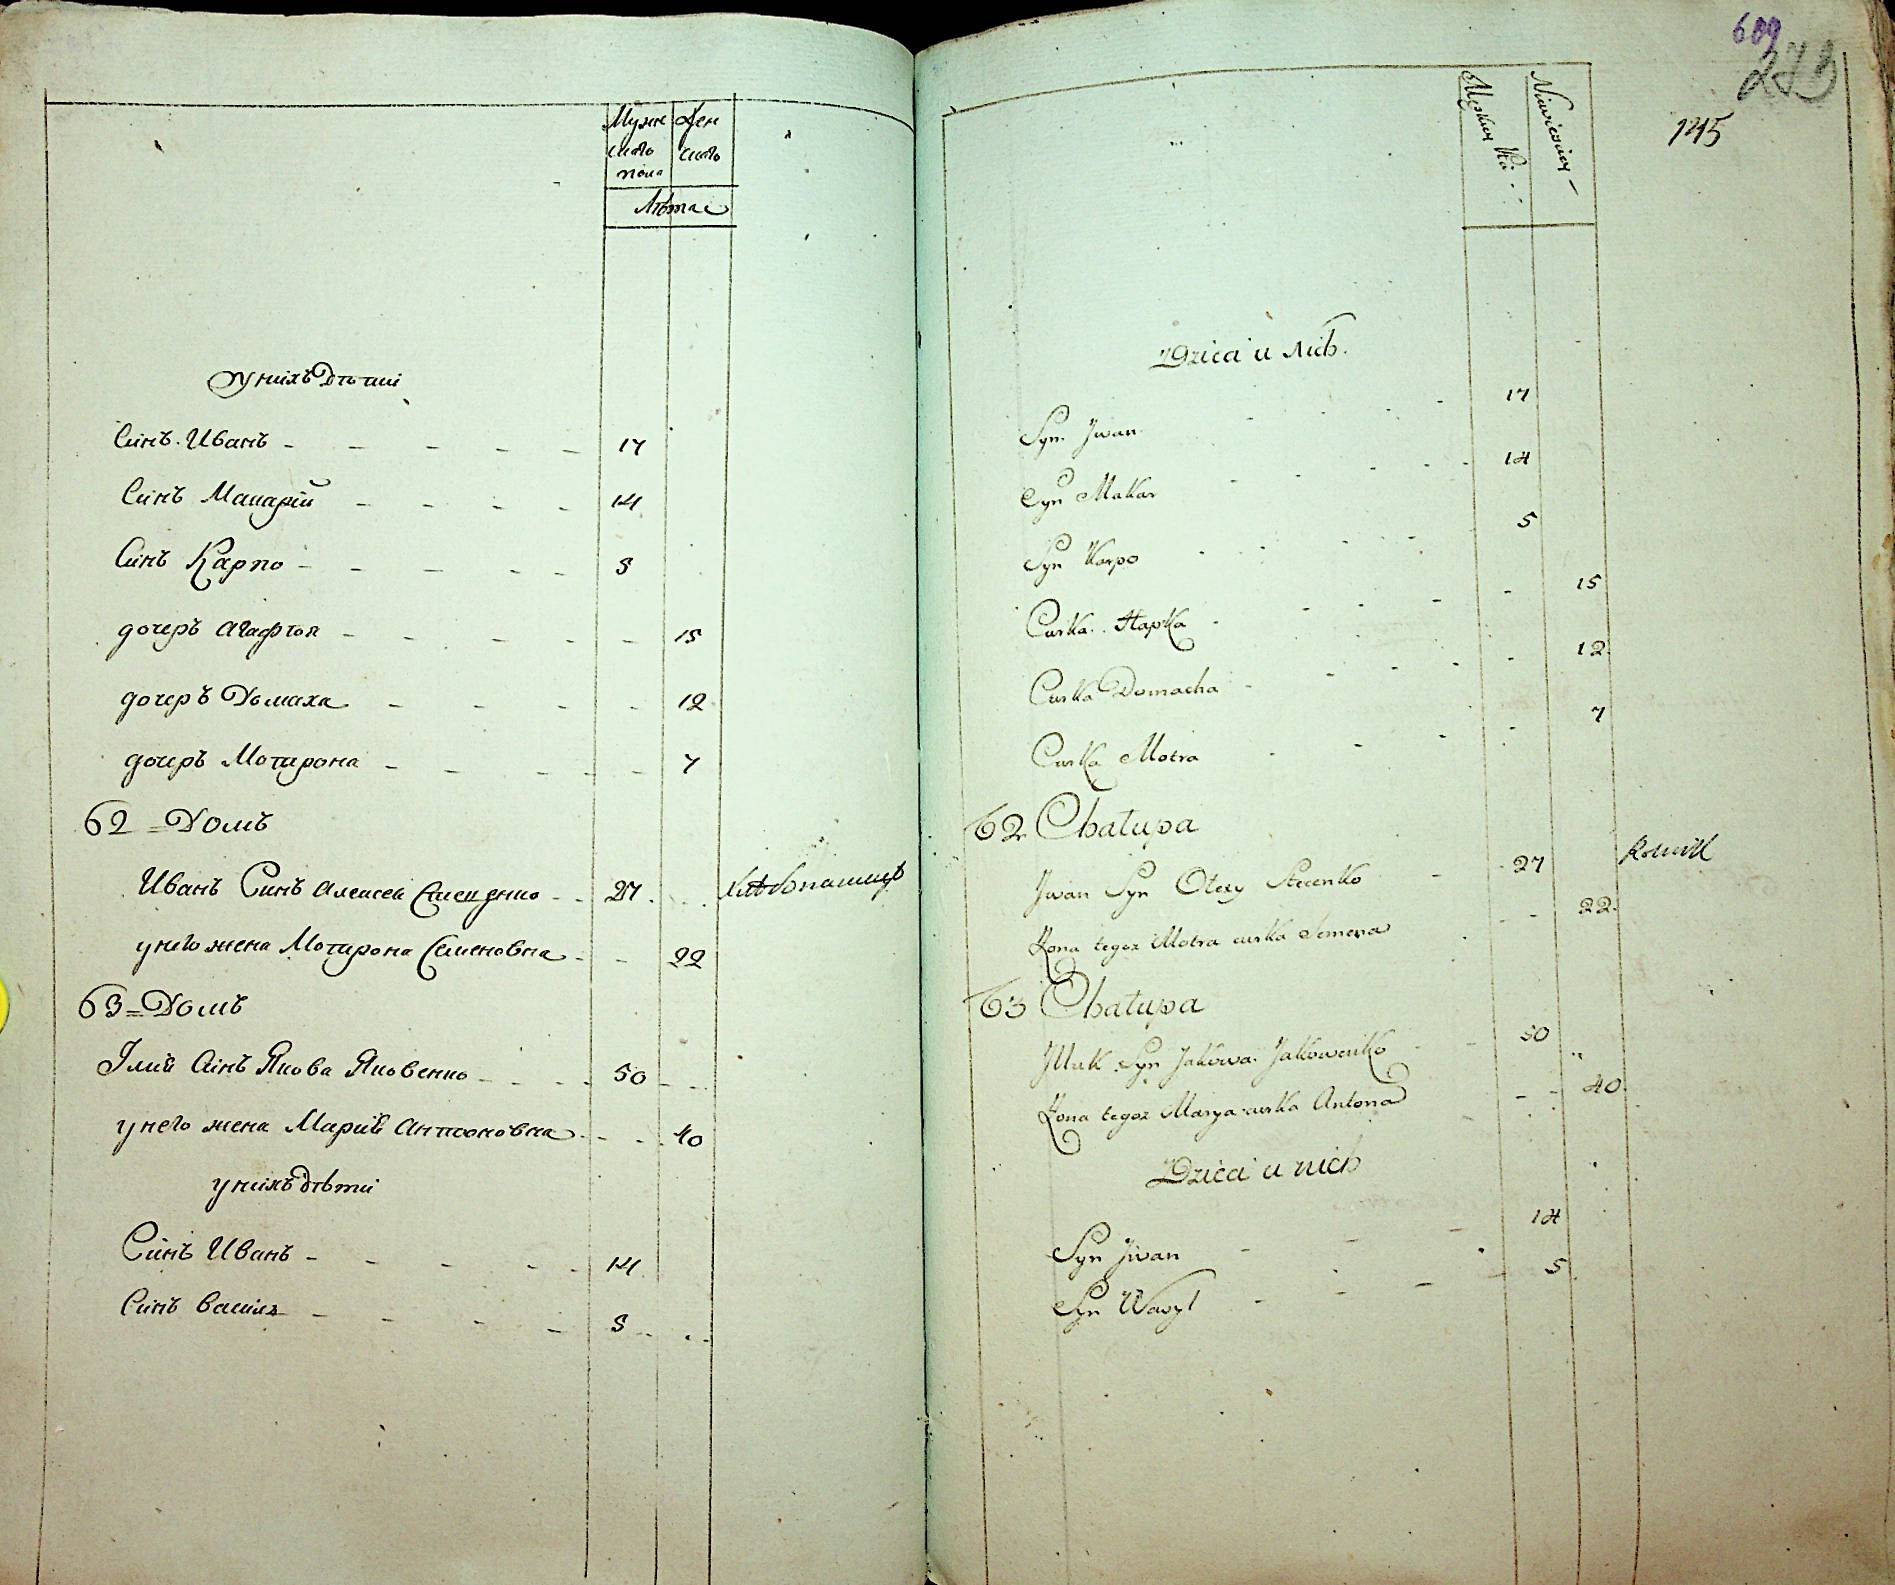 Мужс Жен
каго скаго
пола
Лѣта
у нихъ Дѣти
Синъ Иванъ 17
Синъ Макарій 14
Синъ Карпо 5
дочеръ Агафіoя 15
дочеръ Домаха 12
дочеръ Мотирона 7
62 = Домъ
Иванъ Синъ Алексея 27 хлѣбопашецъ
у него жена Мотирона Семеновна 22
63 = Домъ
Ілия Синъ Якова Яковенко 50
у него жена Мария Антоновна 40
у нихъ дѣти
Синъ Иванъ 14
Синъ василь 5
609
273
145
Męskiey Płci Niewieściey
Dzieci u nich.
Syn Jwan 17
Syn Makar 14
Syn Karpo 5
Curka Hapka 15
Curka Domacha 12
Curka Motra 7
62 Chałupa
Jwan Syn Olexy Stecenko 27 Rolnik
Żona tegoż Motra curka Semena 22
63 Chałupa
Illak Syn Jakowa Jakowenko 50
Żona tegoż Marya curka Antona 40
Dzieci u nich
Syn Jwan 14
Syn Wasyl 5